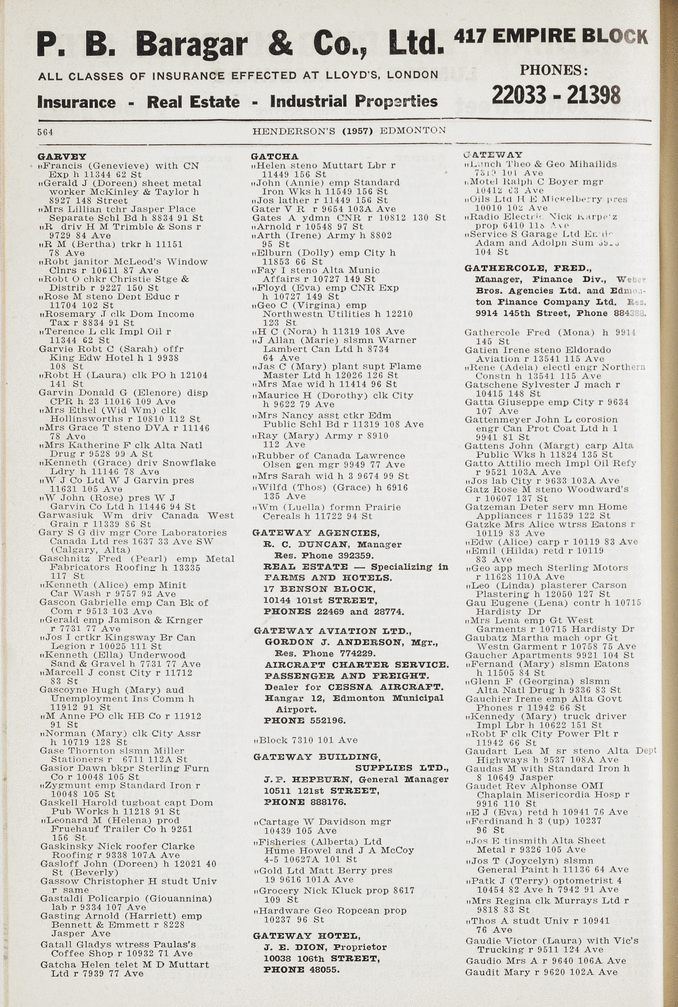 P. B. Baragar & Co., Ltd. 417 EMPIRE BLOCK
ALL CLASSES OF INSURANCE EFFECTED AT LLOYD'S, LONDON
PHONES:
Insurance - Real Estate - Industrial Properties
22033 - 21398
564
HENDERSON'S (1957) EDMONTON
GARVEY
"Francis (Genevieve) with CN
Exp h 11344 62 St
"Gerald J (Doreen) sheet metal
worker McKinley & Taylor h
8927 148 Street
"Mrs Lillian tchr Jasper Place
Separate Schl Bd h 8834 91 St
"R driv H M Trimble & Sons r
9729 84 Ave
"R M (Bertha) trkr h 11151
78 Ave
"Robt janitor McLeod's Window
Clnrs r 10611 87 Ave
"Robt O chkr Christie Stge &
Distrib r 9227 150 St
"Rose M steno Dept Educ r
11704 102 St
"Rosemary J clk Dom Income
Tax r 8834 91 St
"Terence L clk Impl Oil r
11344 62 St
Garvie Robt C (Sarah) offr
King Edw Hotel h 1 9938
108 St
"Robt H (Laura) clk PO h 12104
141 St
Garvin Donald G (Elenore) disp
CPR h 23 11016 109 Ave
"Mrs Ethel (Wid Wm) clk
Hollinsworths r 10810 112 St
"Mrs Grace T steno DVA r 11146
78 Ave
"Mrs Katherine F clk Alta Natl
Drug r 9528 99 A St
"Kenneth (Grace) driv Snowflake
Ldry h 11146 78 Ave
"W J Co Ltd W J Garvin pres
11631 105 Ave
"W John (Rose) pres W J
Garvin Co Ltd h 11446 94 St
Garwasiuk Wm driv Canada West
Grain r 11339 86 St
Gary S G div mgr Core Laboratories
Canada Ltd res 1637 33 Ave SW
(Calgary, Alta)
Gaschnitz Fred (Pearl) emp Metal
Fabricators Roofing h 13335
117 St
"Kenneth (Alice) emp Minit
Car Wash r 9757 93 Ave
Gascon Gabrielle emp Can Bk of
Com r 9513 103 Ave
"Gerald emp Jamison & Krnger
r 7731 77 Ave
"Jos I crtkr Kingsway Br Can
Legion r 10025 111 St
"Kenneth (Ella) Underwood
Sand & Gravel h 7731 77 Ave
"Marcell J const City r 11712
83 St
Gascoyne Hugh (Mary) aud
Unemployment Ins Comm h
11912 91 St
"M Anne PO clk HB Co r 11912
91 St
"Norman (Mary) clk City Assr
h 10719 128 St
Gase Thornton slsmn Miller
Stationers r 6711 112A St
Gasior Dawn bkpr Sterling Furn
Co r 10048 105 St
"Zygmunt emp Standard Iron r
10048 105 St
Gaskell Harold tugboat capt Dom
Pub Works h 11218 91 St
"Leonard M (Helena) prod
Fruehauf Trailer Co h 9251
156 St
Gaskinsky Nick roofer Clarke
Roofing r 9338 107A Ave
Gasloff John (Doreen) h 12021 40
St (Beverly)
Gassow Christopher H studt Univ
r same
Gastaldi Policarpio (Giouannina)
lab r 9334 107 Ave
Gasting Arnold (Harriett) emp
Bennett & Emmett r 8228
Jasper Ave
Gatall Gladys wtress Paulas's
Coffee Shop r 10932 71 Ave
Gatcha Helen telet M D Muttart
Ltd r 7939 77 Ave
GATCHA
"Helen steno Muttart Lbr r
11449 156 St
"John (Annie) emp Standard
Iron Wks h 11549 156 St
"Jos lather r 11449 156 St
Gater V R r 9654 103A Ave
Gates A ydmn CNR r 10812 130 St
"Arnold r 10548 97 St
"Arth (Irene) Army h 8802
95 St
"Elburn (Dolly) emp City h
11853 66 St
"Fay I steno Alta Munic
Affairs r 10727 149 St
"Floyd (Eva) emp CNR Exp
h 10727 149 St
"Geo C (Virgina) emp
Northwestn Utilities h 12210
123 St
"H C (Nora) h 11319 108 Ave
"J Allan (Marie) slsmn Warner
Lambert Can Ltd h 8734
64 Ave
"Jas C (Mary) plant supt Flame
Master Ltd h 12026 126 St
"Mrs Mae wid h 11414 96 St
"Maurice H (Dorothy) clk City
h 9622 79 Ave
"Mrs Nancy asst ctkr Edm
Public Schl Bd r 11319 108 Ave
"Ray (Mary) Army r 8910
112 Ave
"Rubber of Canada Lawrence
Olsen gen mgr 9949 77 Ave
"Mrs Sarah wid h 3 9674 99 St
"Wilfd (Thos) (Grace) h 6916
135 Ave
"Wm (Luella) formn Prairie
Cereals h 11722 94 St
GATEWAY AGENCIES,
R. C. DUNCAN, Manager
Res. Phone 392359.
REAL ESTATE — Specializing in
FARMS AND HOTELS.
17 BENSON BLOCK,
10144 101st STREET,
PHONES 22469 and 28774.
GATEWAY AVIATION LTD.,
GORDON J. ANDERSON, Mgr.,
Res. Phone 774229.
AIRCRAFT CHARTER SERVICE.
PASSENGER AND FREIGHT.
Dealer for CESSNA AIRCRAFT.
Hangar 12, Edmonton Municipal
Airport.
PHONE 552196.
"Block 7310 101 Ave
GATEWAY BUILDING,
SUPPLIES LTD.,
J. P. HEPBURN, General Manager
10511 121st STREET,
PHONE 888176.
"Cartage W Davidson mgr
10439 105 Ave
"Fisheries (Alberta) Ltd
Hume Howel and J A McCoy
4-5 10627A 101 St
"Gold Ltd Matt Berry pres
19 9616 101A Ave
"Grocery Nick Kluck prop 8617
109 St
"Hardware Geo Ropcean prop
10237 96 St
GATEWAY HOTEL,
J. E. DION, Proprietor
10038 106th STREET,
PHONE 48055.
GATEWAY
"Lunch Theo & Geo Mihailids
101 Ave
"Motel Ralph C Boyer mgr
10412 63 Ave
"Oils Ltd H E Mickelberry pres
10010 102 Ave
"Radio Electric Nick
prop 6410 Ave
"Service S Garage Ltd
Adam and Adolph Sum
104 St
GATHERCOLE, FRED.,
Manager, Finance Div., Weber
Bros. Agencies Ltd. and Edmon-
ton Finance Company Ltd. Res.
9914 145th Street, Phone
Gathercole Fred (Mona) h 9914
145 St
Gatien Irene steno Eldorado
Aviation r 13541 115 Ave
"Rene (Adela) electl engr Northern
Constn h 13541 115 Ave
Gatschene Sylvester J mach r
10415 148 St
Gatta Giuseppe emp City r 9634
107 Ave
Gattenmeyer John L corosion
engr Can Prot Coat Ltd h 1
9941 81 St
Gattens John (Margt) carp Alta
Public Wks h 11824 135 St
Gatto Attilio mech Impl Oil Refy
r 9521 103A Ave
"Jos lab City r 9633 103A Ave
Gatz Rose M steno Woodward's
r 10607 137 St
Gatzeman Deter serv mn Home
Appliances r 11539 122 St
Gatzke Mrs Alice wtrss Eatons r
10119 83 Ave
"Edw (Alice) carp r 10119 83 Ave
"Emil (Hilda) retd h 10119
83 Ave
"Geo app mech Sterling Motors
r 11628 110A Ave
"Leo (Linda) plasterer Carson
Plastering h 12050 127 St
Gau Eugene (Lena) contr h 10715
Hardisty Dr
"Mrs Lena emp Gt West
Garments r 10715 Hardisty Dr
Gaubatz Martha mach opr Gt
Westn Garment r 10758 75 Ave
Gaucher Apartments 9921 104 St
"Fernand (Mary) slsmn Eatons
h 11505 84 St
"Glenn F (Georgina) slsmn
Alta Natl Drug h 9336 83 St
Gauchier Irene emp Alta Govt
Phones r 11942 66 St
"Kennedy (Mary) truck driver
Impl Lbr h 10622 151 St
"Robt F clk City Power Plt r
11942 66 St
Gaudart Lea M sr steno Alta Dept
Highways h 9537 108A Ave
Gaudas M with Standard Iron h
8 10649 Jasper
Gaudet Rev Alphonse OMI
Chaplain Misericordia Hosp r
9916 110 St
"E J (Eva) retd h 10941 76 Ave
"Ferdinand h 3 (up) 10237
96 St
"Jos E tinsmith Alta Sheet
Metal r 9326 105 Ave
"Jos T (Joycelyn) slsmn
General Paint h 11136 64 Ave
"Patk J (Terry) optometrist 4
10454 82 Ave h 7942 91 Ave
"Mrs Regina clk Murrays Ltd r
9818 83 St
"Thos A studt Univ r 10941
76 Ave
Gaudie Victor (Laura) with Vic's
Trucking r 9511 124 Ave
Gaudio Mrs A r 9640 106A Ave
Gaudit Mary r 9620 102A Ave